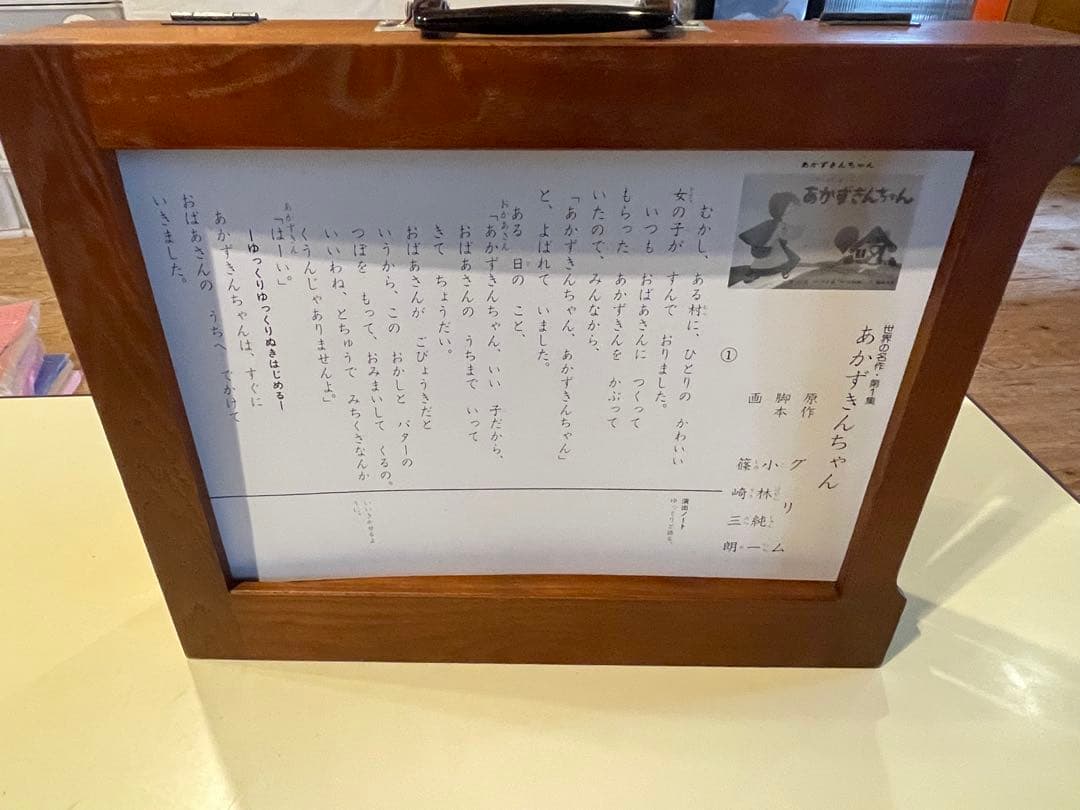 あかずきんちゃん
あかずきんちゃん
世界の名作・第1集
あかずきんちゃん
原作 グリム
脚本 小林純一
画 篠崎三朗
①
むかし、ある村に、ひとりの かわいい
女の子が すんで おりました。
いつも おばあさんに つくって
もらった あかずきんを かぶって
いたので、みんなから、
「あかずきんちゃん、あかずきんちゃん」
と、よばれて いました。
ある 日の こと、
おかあさん
「あかずきんちゃん、いい 子だから、
おばあさんの うちまで いって
きて ちょうだい。
おばあさんが ごびょうきだと
いうから、この おかしと バターの
つぼを もって、おみまいして くるの。
いいわね、とちゅうで みちくさなんか
くうんじゃありませんよ。」
あかずきん
「はーい。」
―ゆっくりゆっくりぬきはじめる―
あかずきんちゃんは、すぐに
おばあさんの うちへ でかけて
いきました。
演出ノート
ゆっくりと語る。
いいきかせるよ
うに。